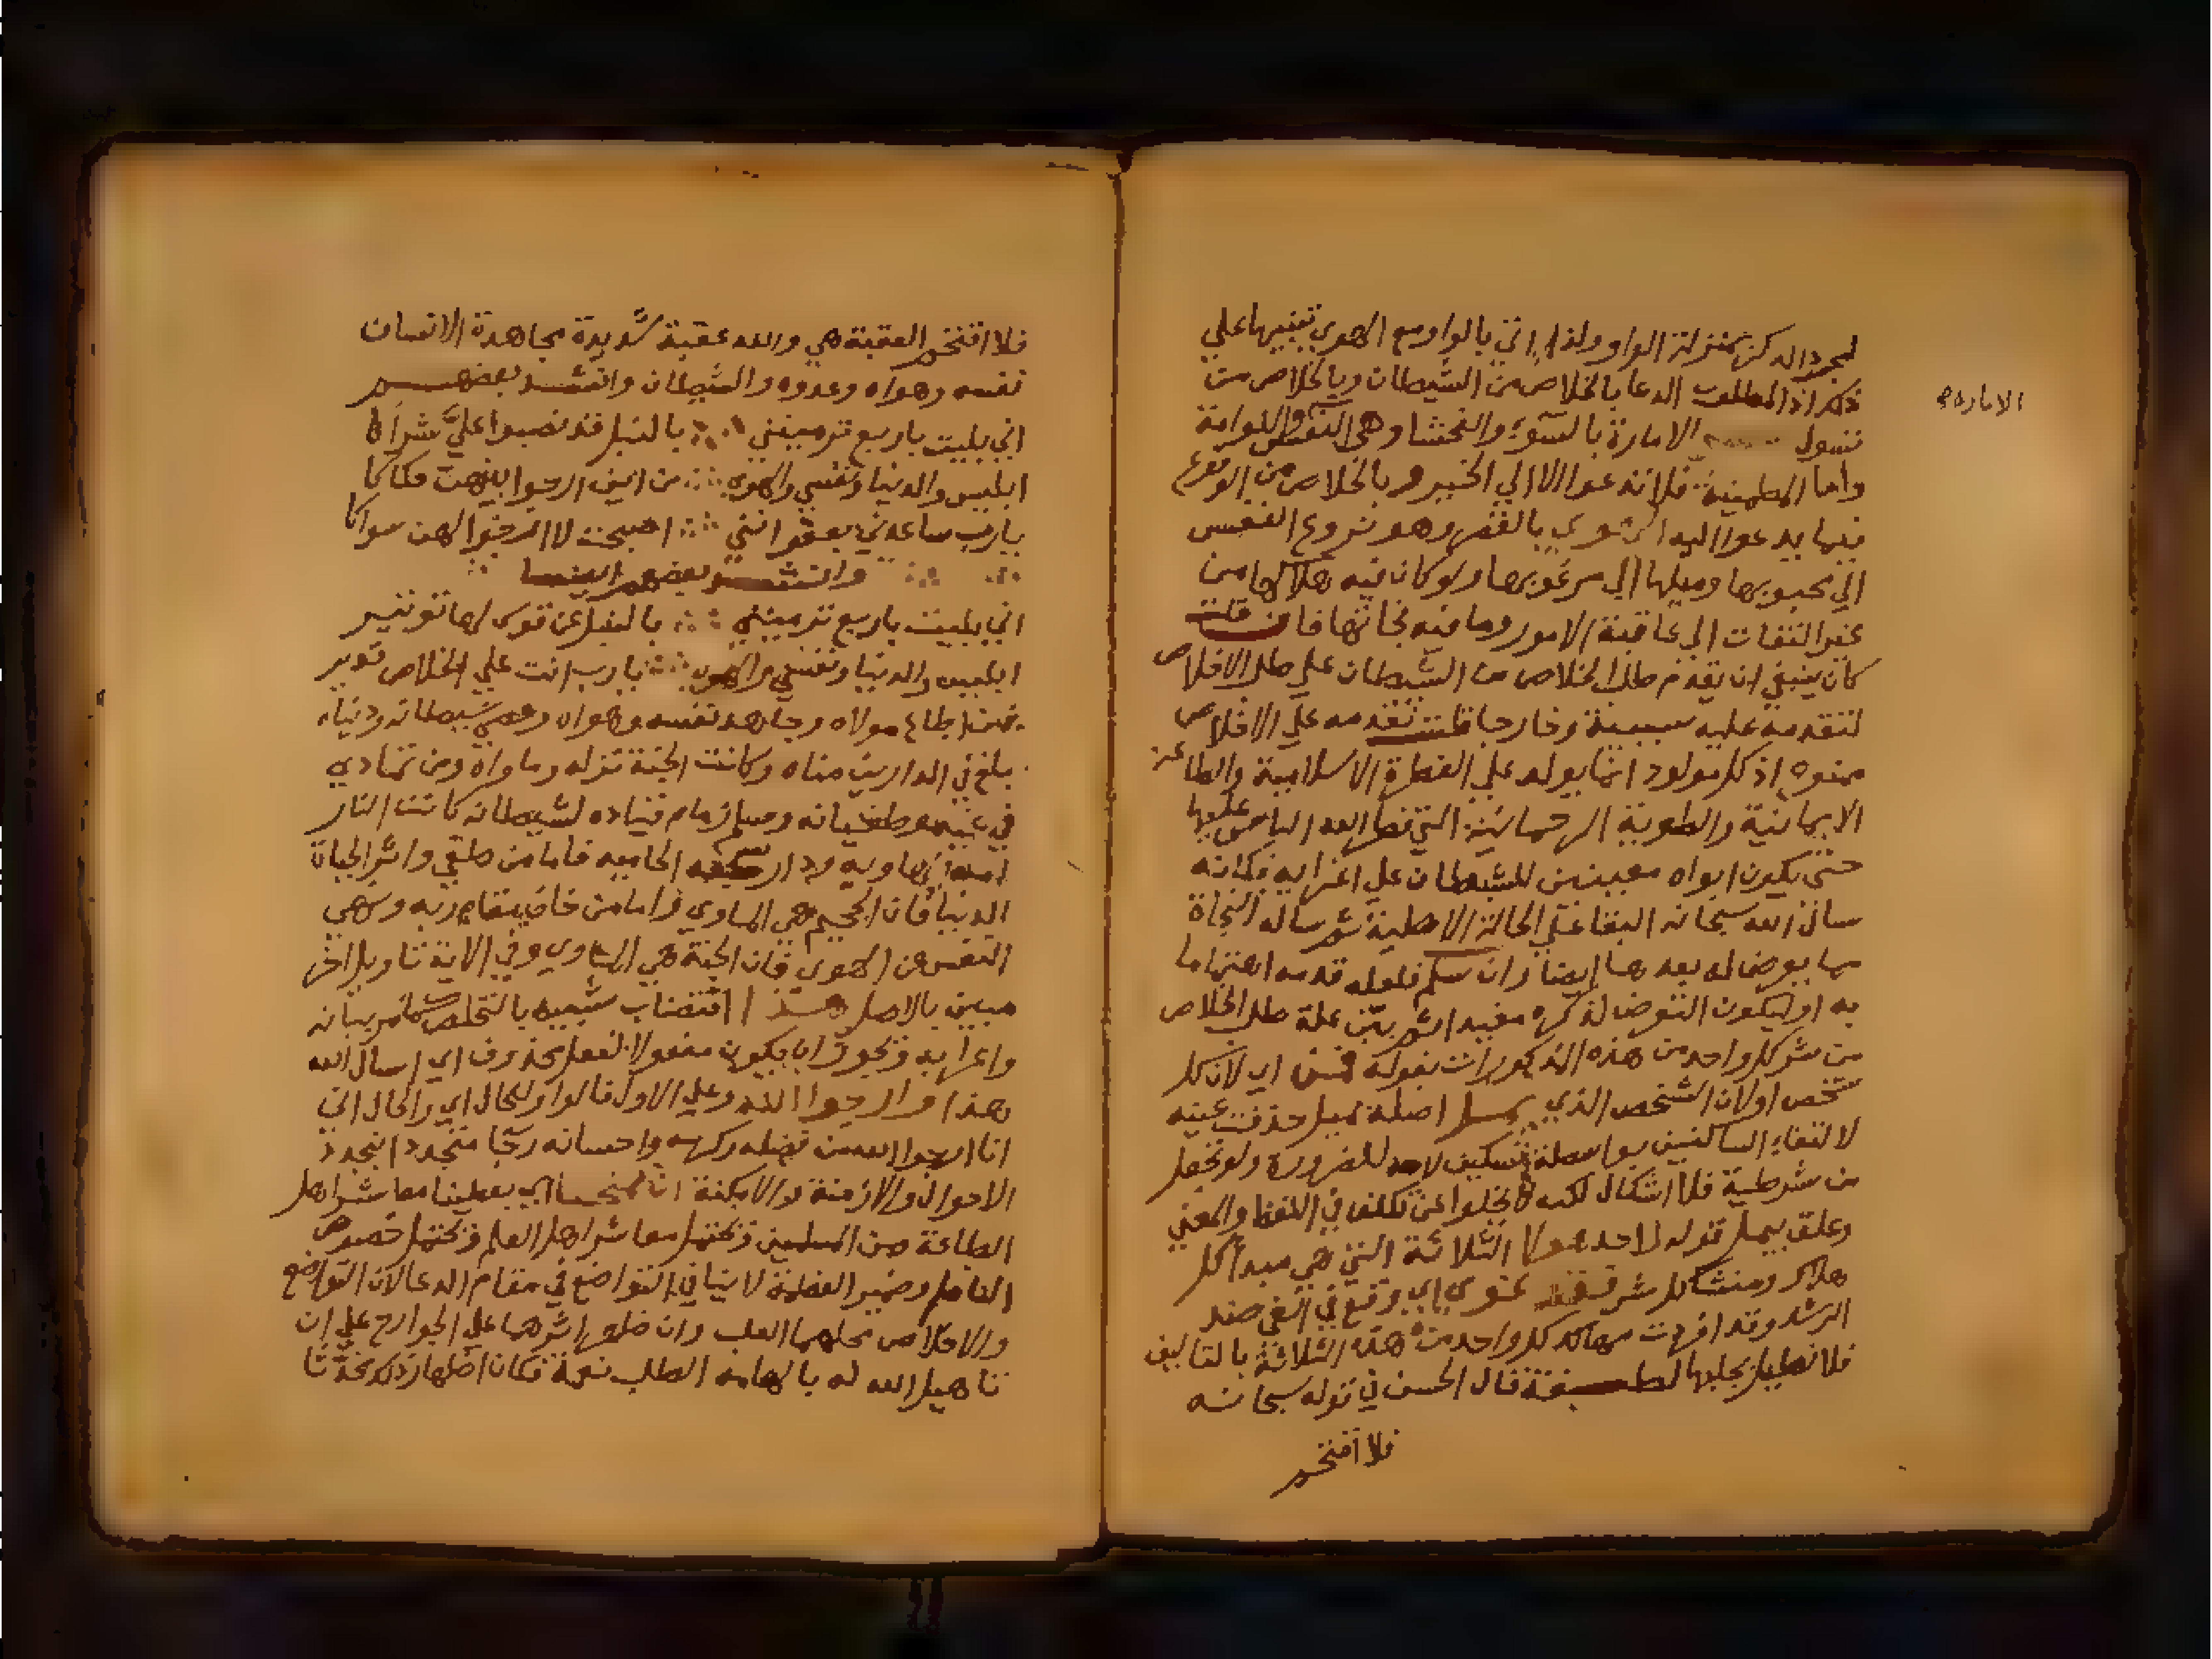 لمجرد الذكر بمنزلة الواو ولذا اتي بالواو مع الهوي تنبيها علي
ذلك اذ المطلوب الدعا بالخلاص من الشيطان وبالخلاص من
تسول الامارة بالسوء والفحشا وهي النفس اللوامة
الاماره
واما المطمينة فلا تدعوا الا الي الخير وبالخلاص من الوقوع
فيما يدعوا اليه الهوي بالقصر وهو نزوع النفس
الي محبوبها وميلها الي مرغوبها ولو كان فيه هلاكها من
غير التفات الي عاقبة الامور وما فيه نجاتها فان قلت
كان ينبغي ان يقدم طلب الخلاص من الشيطان علي طلب الاخلاص
لتقدمه عليه سببية وخارجا قلت تقدمه علي الاخلاص
ممنوع اذ كل مولود انما يولد علي الفطرة الاسلامية والطاعة
الايمانية والطوية الرحمانية التي فطر الله الناس عليها
حتي يكون ابواه معينين للشيطان علي اغوايه فكانه
سال الله سبحانه البقا علي الحالة الاصلية ثم ساله النجاة
مما يعرض له بعدها ايضا وان سلم فلعله قدمه اهتماما
به او ليكون التعرض لذكره مفيدا ثم بين علة طلب الخلاص
من شر كل واحد من هذه المذكورات بقوله فمن اي لان كل
شخص او لان الشخص الذي يمل اصله يميل حذفت عينه
لالتقاء الساكنين بواسطة تسكين لامه للضرورة ولو تجعل
من شرطية فلا اشكال لكنه لا يخلوا عن تكلف في اللفظ والمعني
وعلق بيمل قوله لاحد هولا الثلاثة التي هي مبدا كل
هلاك ومنشا كل شر فقد غوي اي وقع في الغي ضد
الرشد وقد افردت مهالك كل واحد من هذه الثلاثة بالتاليف
فلا نطيل بجلبها لطيفة قال الحسن في قوله سبحانه
فلا اقتحم
فلا اقتحم العقبة هي والله عقبة شديدة مجاهدة الانسان
نفسه وهواه وعدوه والشيطان وانشد بعضهم
اني بليت باربع ترمينني بالنبل قد نصبوا علي شراكا
ابليس والدنيا ونفسي والهوي من اين ارجوا بينهن فكاكا
يارب ساعدني بعفو انني اصبحت لا ارجوا لهن سواكا
وانشد بعضهم ايضا
اني بليت باربع ترمينني بالنبل عن قوس لها توتير
ابليس والدنيا ونفسي والهوي يارب انت علي الخلاص قدير
فمن اطاع مولاه وجاهد نفسه وهواه وعصي شيطانه ودنياه
بلغ في الدارين مناه وكانت الجنة نزله وماواه ومن تمادي
في غيه وطغيانه وسلم زمام قياده لشيطانه كانت النار
الحاميه فاما من طغي واثر الحياة
الدنيا فان الجحيم هي الماوي واما من خاف مقام ربه ونهي
النفس عن الهوي فان الجنة هي الماوي وفي الاية تاويل اخر
مبين بالاصل هذا اقتضاب شبيه بالتخلص كما مر بيانه
واعرابه ويجوز ان يكون مفعولا لفعل محذوف اي اسال الله
هذا وارجوا الله وعلي الاول فالواو للحال اي والحال اني
انا ارجوا الله من فضله وكرمه واحسانه رجا متجددا بتجدد
الاحوال والازمنة والامكنة ان يمنحنا اي يعطينا معاشر اهل
الطاعة من المسلمين ويحتمل معاشر اهل العلم ويحتمل خصوص
الناظم وضمير العظمة لا ينافي التواضع في مقام الدعا لان التواضع
والاخلاص محلهما القلب وان ظهر اثرهما علي الجوارح علي ان
تاهيل الله له بالهامه الطلب نعمة فكان اظهار ذلك تحدثا